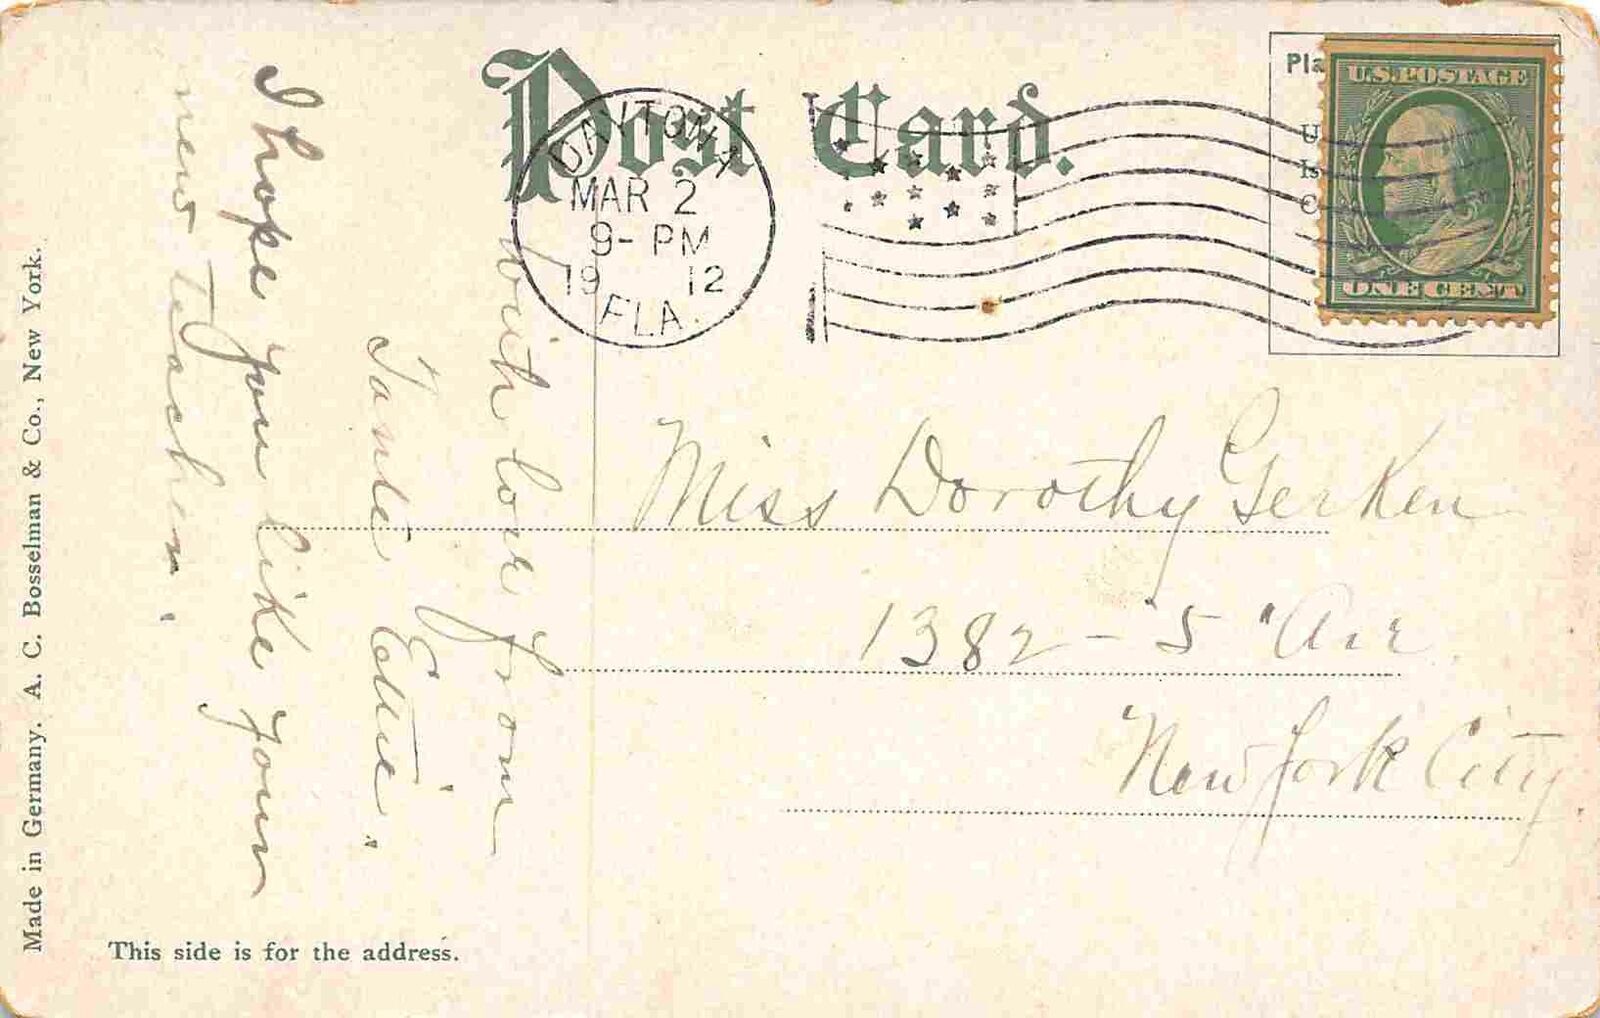 Post Card.
DAYTONA
MAR 2
9- PM
19 12
FLA.
Pla
U
Is
C
U.S. POSTAGE
ONE CENT
Miss Dorothy Gerken
1382 - 5 " Ave.
New York City.
with love from
Tante Edtie.
I hope you like your
new teacher.
Made in Germany. A. C. Bosselman & Co., New York.
This side is for the address.